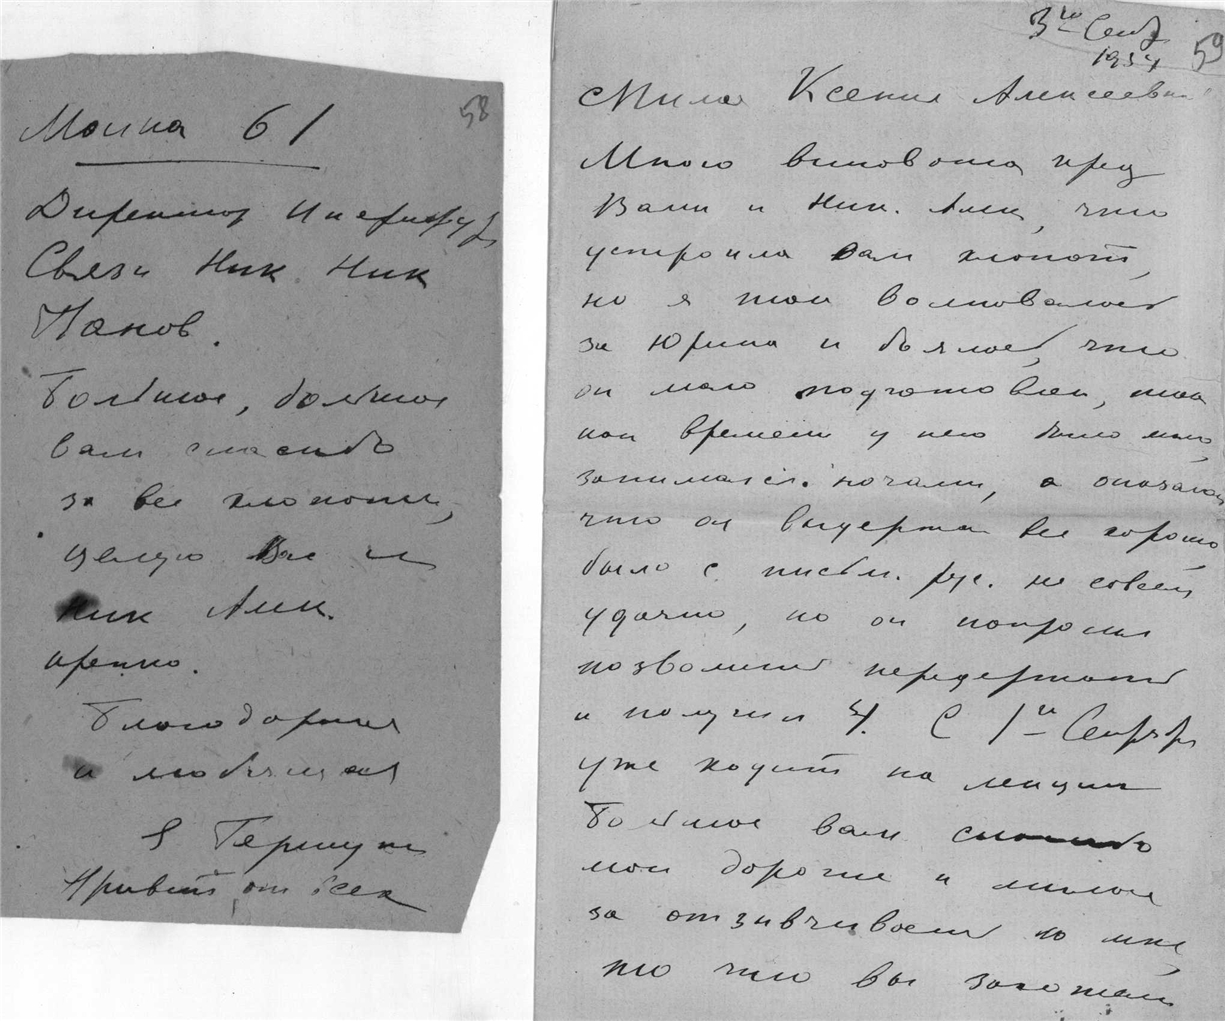 58
Мойка 61
Директор
Связи Ник Ник
Панов.
Большое, большое
вам спасибо
за все хлопоты,
целую Вас и
Ник Алек.
крепко.
Благодарная
и любящая
Привет от всех
3го Сент
1934
59
Милая Ксения Алексеевна
Много виновата пред
Вами и Ник. Алек, что
устроила вам хлопот,
но я так волновалась
за Юрика и боялась, что
он мало подготовлен, так
как времени у него было мало,
занимался ночами, а оказалось
что он выдержал все хорошо
было с письм. рус. не совсем
удачно, но он попросил
позволить передержать
и получил 4. С 1го Сентябр
уже ходит на лекции
Большое вам спасибо
мои дорогие и милые
за отзывчивость ко мне,
то что вы